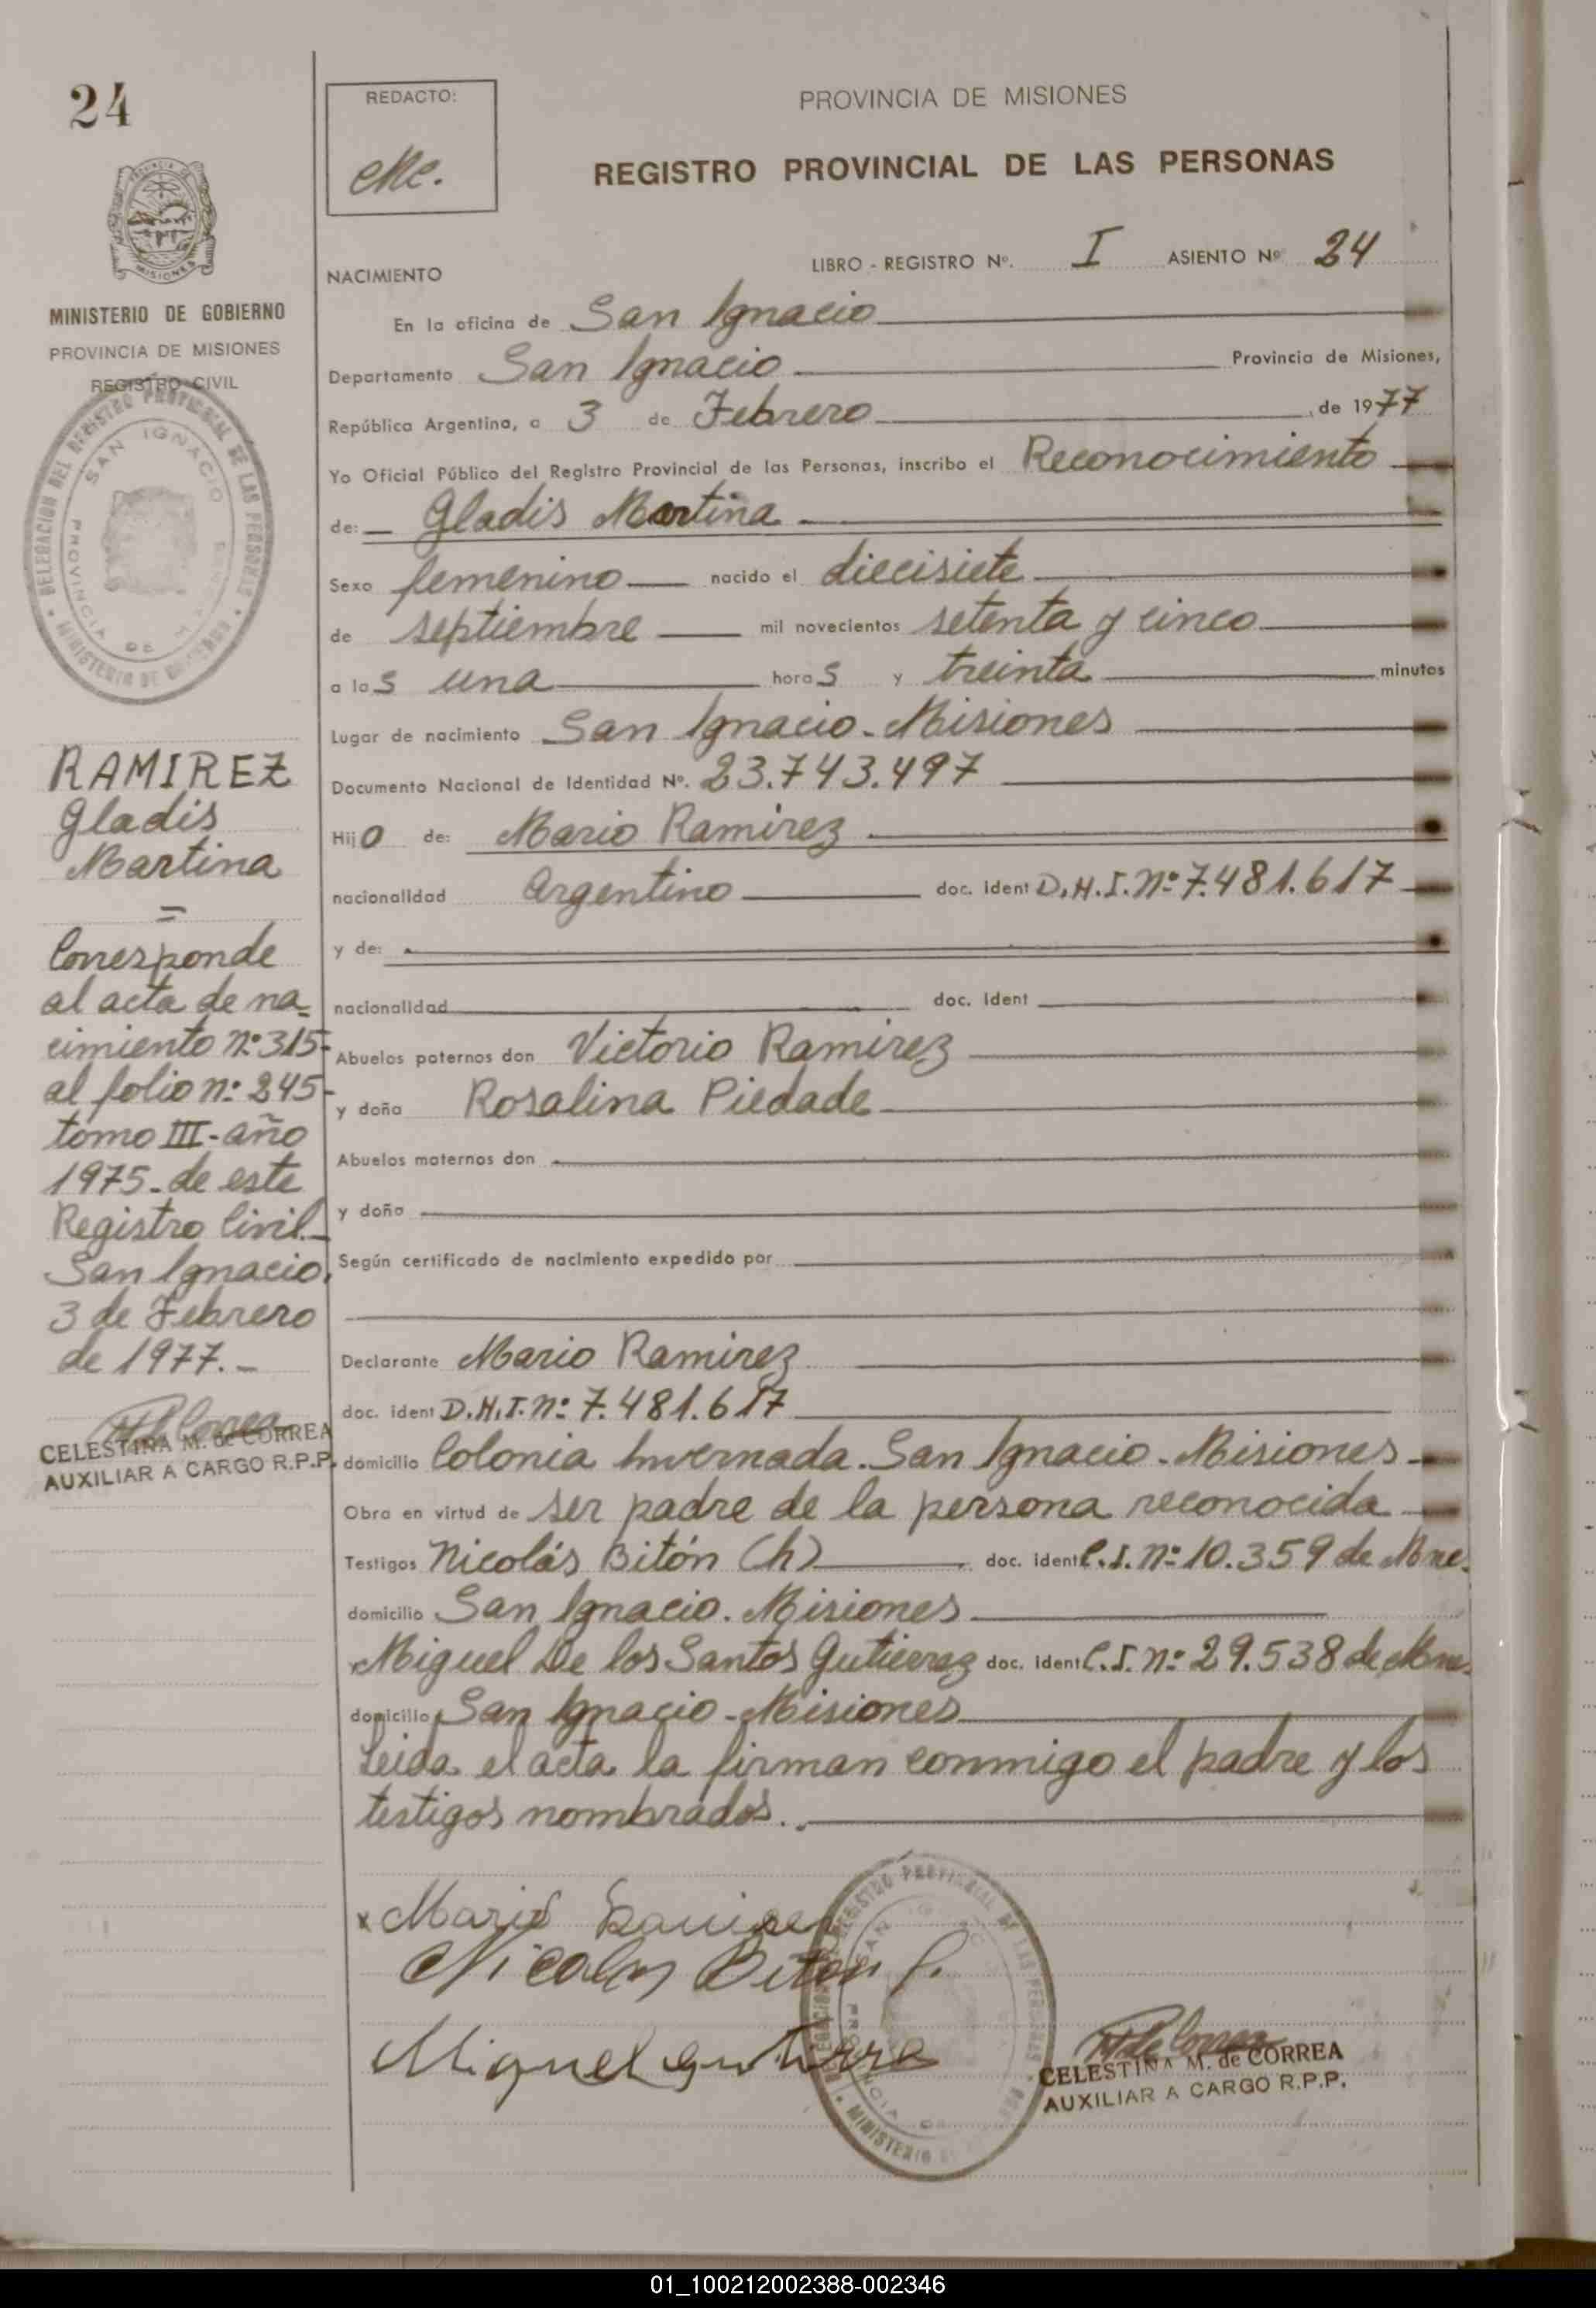 24
REDACTO:
PROVINCIA DE MISIONES
REGISTRO PROVINCIAL DE LAS PERSONAS
MISIONES
MINISTERIO DE GOBIERNO
PROVINCIA DE MISIONES
REGISTRO CIVIL
DELEGACION DEL REGISTRO PROVINCIAL DE LAS PERSONAS
SAN IGNACIO
PROVINCIA DE
RAMIREZ
Gladis
Martina
=
Corresponde
al acta de na=
cimiento nº 315-
al folio nº 245-
tomo III-año
1975-de este
Registro Civil-
San Ignacio,
3 de Febrero
de 1977.-
CELESTINA M. de CORREA
AUXILIAR A CARGO R.P.P.
LIBRO - REGISTRO Nº. I ASIENTO Nº 24
NACIMIENTO
En la oficina de San Ignacio
Departamento San Ignacio Provincia de Misiones,
República Argentina, a 3 de Febrero , de 1977
Yo Oficial Público del Registro Provincial de las Personas, inscribo el Reconocimiento
de: Gladis Martina
Sexo femenino nacido el diecisiete
de septiembre mil novecientos setenta y cinco
a las una horas y treinta minutos
Lugar de nacimiento San Ignacio-Misiones
Documento Nacional de Identidad Nº. 23.743.497
Hijo de: Mario Ramirez
nacionalidad Argentino doc. ident D.N.I. nº 7.481.617
y de:
nacionalidad doc. ident
Abuelos paternos don Victorio Ramirez
y doña Rosalina Piedade
Abuelos maternos don
y doña
Según certificado de nacimiento expedido por
Declarante Mario Ramirez
doc. ident D.N.I. nº 7.481.617
domicilio Colonia Invernada. San Ignacio-Misiones
Obra en virtud de ser padre de la persona reconocida
Testigos Nicolás Bitón (h) doc. ident C.I. nº 10.359 de Mnes.
domicilio San Ignacio. Misiones
Miguel De los Santos Gutierrez doc. ident C.I. nº 29.538 de Mnes.
domicilio San Ignacio-Misiones
Leida el acta la firman conmigo el padre y los
testigos nombrados.
x Mario Ramirez
Nicolas Biton
Miguel Gutierre
CELESTINA M. de CORREA
AUXILIAR A CARGO R.P.P.
01_100212002388-002346